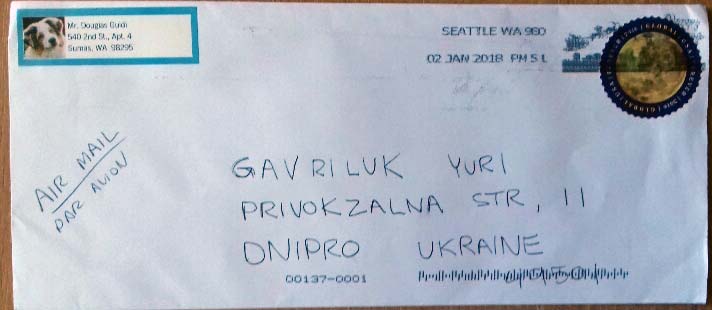 Mr. Douglas Guidi
540 2nd St., Apt. 4
Sumas, WA 98295
SEATTLE WA 980
02 JAN 2018 PM 5 L
GLOBAL
FOREVER
2016
USA
AIR MAIL
PAR AVION
GAVRILUK YURI
PRIVOKZALNA STR, 11
DNIPRO UKRAINE
00137-0001